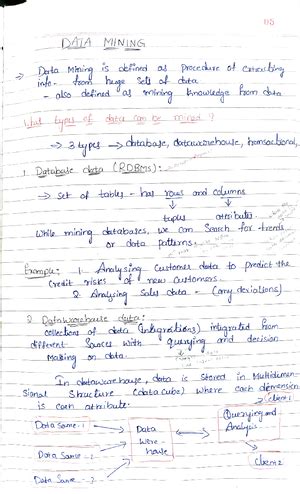 DATA MINING
→ Data Mining is defined as procedure of extracting
info- from huge sets of data
- also defined as mining knowledge from data
What types of data can be mined?
→ 3 types → database, datawarehouse, transactional,
1. Database data (RDBMS):
→ Set of tables - has rows and columns
tuples attributes.
While mining databases, we can search for trends
or data patterns.
Example: 1. Analysing customer data to predict the
credit risks of new customers.
2. Analysing sales data - (any deviations)
2. Datawarehouse data:
collections of data (integrations) integrated from
different sources with querying and decision
making on data.
In datawarehouse, data is stored in Multidimen-
sional structure (data cube) where each dimension
is each attribute.
client 1
Data Source - 1
Data
ware-
house
Querying and
Analysis
Data Source - 2
client 2
Data Source - 3